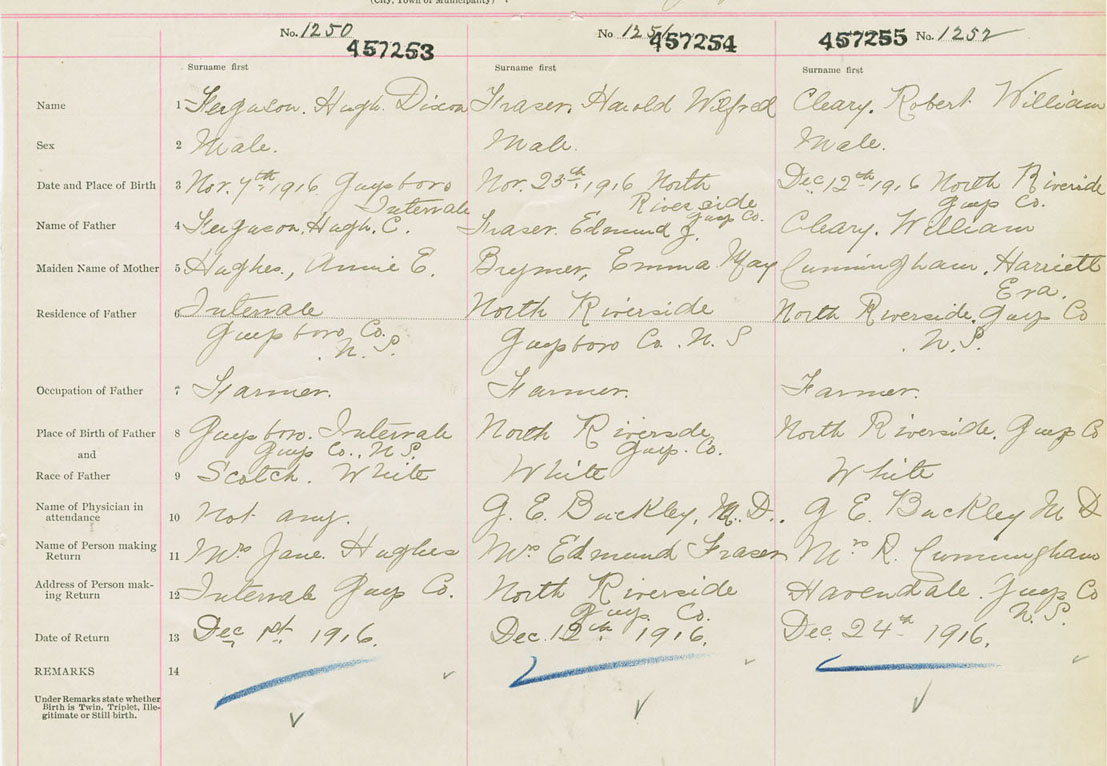 (City, Town or Municipality)
No. 1250 457253 No. 1251 457254 457255 No. 1252
Surname first Surname first Surname first
Name 1 Ferguson. Hugh. Dixon Fraser. Harold Wilfred Cleary. Robert William
Sex 2 Male. Male. Male.
Date and Place of Birth 3 Nov. 7th 1916 Guysboro Nov. 23rd 1916 North Dec 12th 1916 North Riverside
Intervale Riverside Guys Co. Guys Co.
Name of Father 4 Ferguson. Hugh. C. Fraser. Edmund J. Cleary. William
Maiden Name of Mother 5 Hughes, Annie E. Brymer, Emma May Cunningham. Harriett
Eva.
Residence of Father 6 Intervale North Riverside North Riverside. Guys Co
Guysboro Co. Guysboro Co. N. S . N. S.
. N. S.
Occupation of Father 7 Farmer. Farmer. Farmer.
Place of Birth of Father 8 Guysboro. Intervale North Riverside North Riverside. Guys Co
and Guys Co., N. S. Guys. Co.
Race of Father 9 Scotch. White White White
Name of Physician in
attendance 10 Not any. G. E. Buckley, M. D.. G E. Buckley M D
Name of Person making
Return 11 Mrs Jane. Hughes Mrs Edmund Fraser Mrs R. Cunningham
Address of Person mak-
ing Return 12 Intervale Guys Co. North Riverside Havendale. Guys Co
Guys. Co. N. S.
Date of Return 13 Dec 1st 1916. Dec. 12th 1916. Dec. 24th 1916.
REMARKS 14
Under Remarks state whether
Birth is Twin, Triplet, Ille-
gitimate or Still birth.